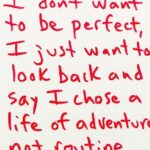 I don't want
to be perfect,
I just want to
look back and
say I chose a
life of adventure
not routine